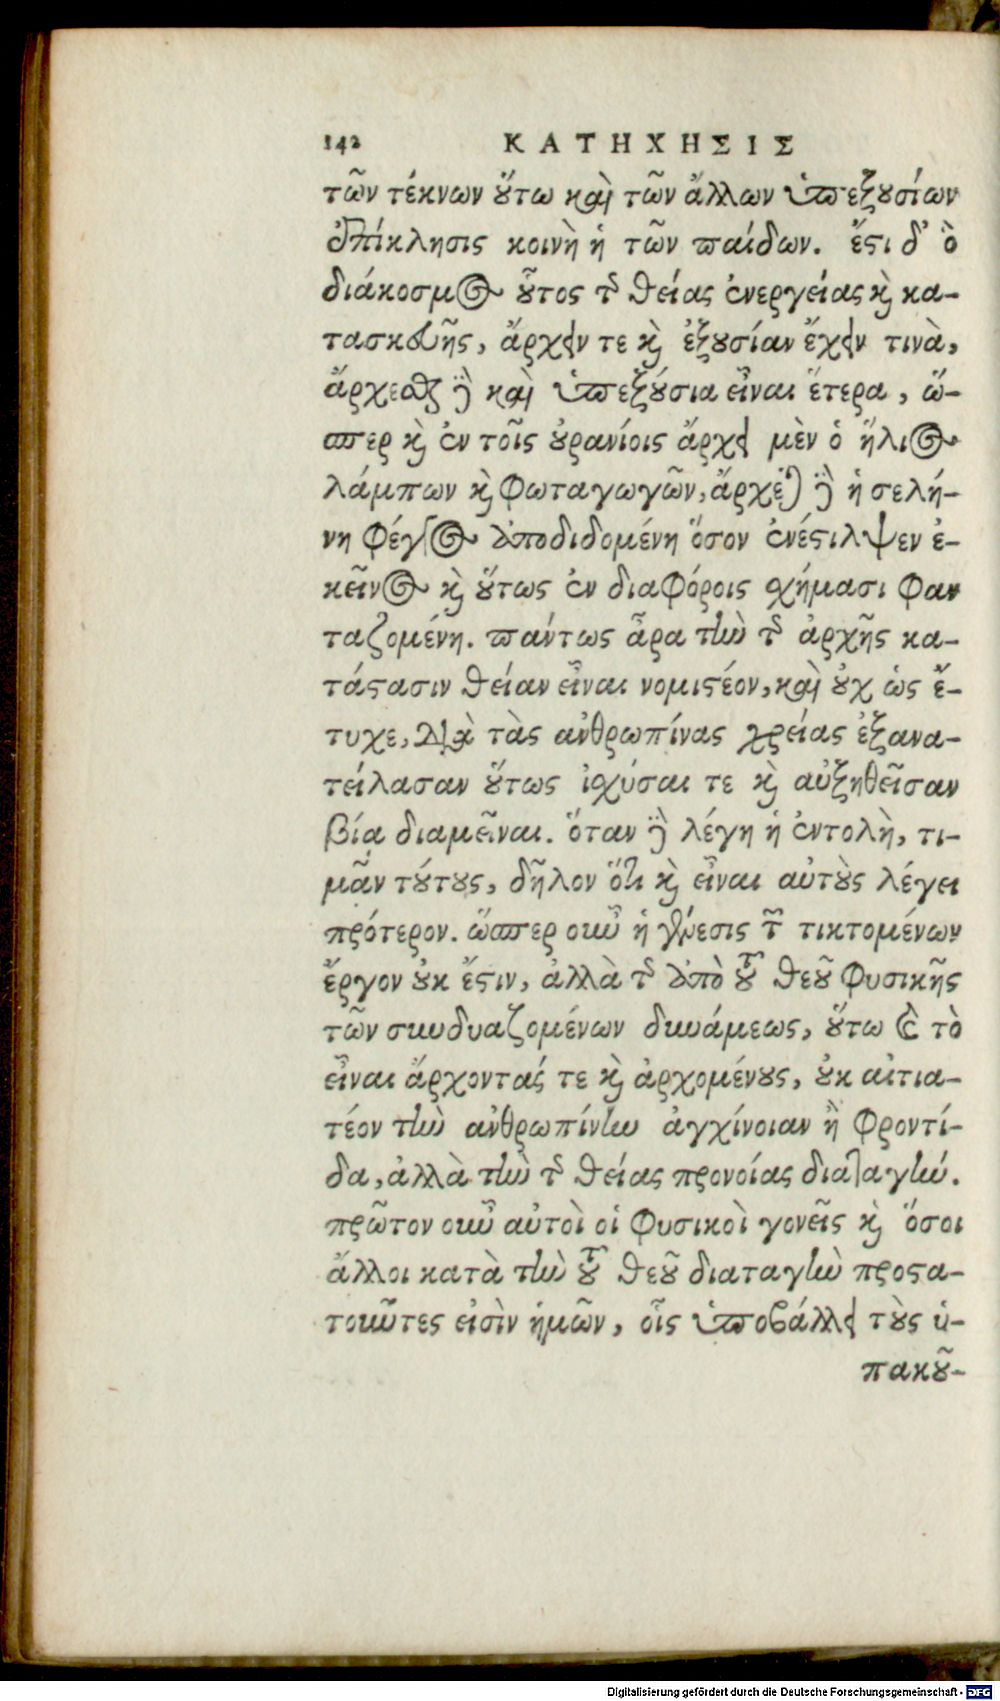 142 ΚΑΤΗΧΗΣΙΣ
τῶν τέκνων ὅτω καὶ τῶν ἄλλων ὑπεξουσίων
ἐπίκλησις κοινὴ ἡ τῶν παίδων. ἔστι δ' ὁ
διάκοσμος οὗτος τῆς θείας ἐνεργείας καὶ κα-
τασκευῆς, ἄρχειν τε καὶ ἐξουσίαν ἔχειν τινὰ,
ἄρχεσθαι δὲ καὶ ὑπεξούσια εἶναι ἕτερα, ὥ-
σπερ καὶ ἐν τοῖς οὐρανίοις ἄρχει μὲν ὁ ἥλιος
λάμπων καὶ φωταγωγῶν, ἄρχεται δὲ ἡ σελή-
νη φέγγος ἀποδιδομένη ὅσον ἐνέστιλψεν ἐ-
κεῖνος καὶ οὕτως ἐν διαφόροις σχήμασι φαν
ταζομένη. πάντως ἄρα τὴν τῆς ἀρχῆς κα-
τάστασιν θείαν εἶναι νομιστέον, καὶ οὐχ ὡς ἔ-
τυχε, διὰ τὰς ἀνθρωπίνας χρείας ἐξανα-
τείλασαν οὕτως ἰσχύσαι τε καὶ αὐξηθεῖσαν
βία διαμεῖναι. ὅταν δὲ λέγη ἡ ἐντολὴ, τι-
μᾶν τούτους, δῆλον ὅτι καὶ εἶναι αὐτοὺς λέγει
πρότερον. ὥσπερ οὖν ἡ γένεσις τῶν τικτομένων
ἔργον οὐκ ἔστιν, ἀλλὰ τῆς ἀπὸ τοῦ θεοῦ φυσικῆς
τῶν συνδυαζομένων δυνάμεως, οὕτω καὶ τὸ
εἶναι ἄρχοντάς τε καὶ ἀρχομένους, οὐκ αἰτια-
τέον τὴν ἀνθρωπίνην ἀγχίνοιαν ἢ φροντί-
δα, ἀλλὰ τὴν τῆς θείας προνοίας διαταγήν.
πρῶτον οὖν αὐτοὶ οἱ φυσικοὶ γονεῖς καὶ ὅσοι
ἄλλοι κατὰ τὴν τοῦ θεοῦ διαταγὴν προστα-
τοῦντες εἰσὶν ἡμῶν, οἷς ὑποβάλλει τοὺς ὑ-
πακοῦ-
Digitalisierung gefördert durch die Deutsche Forschungsgemeinschaft - DFG